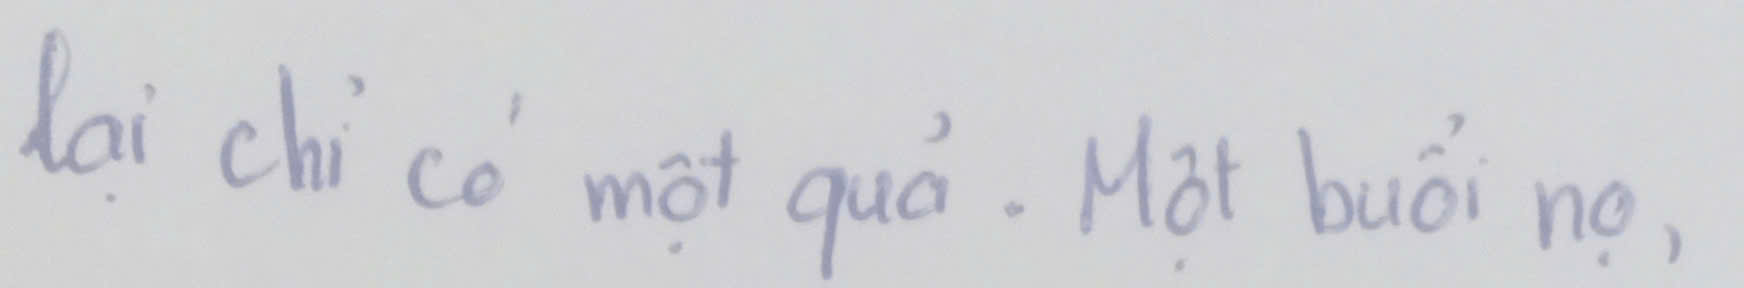 lại chỉ có một quả. Một buổi nọ,